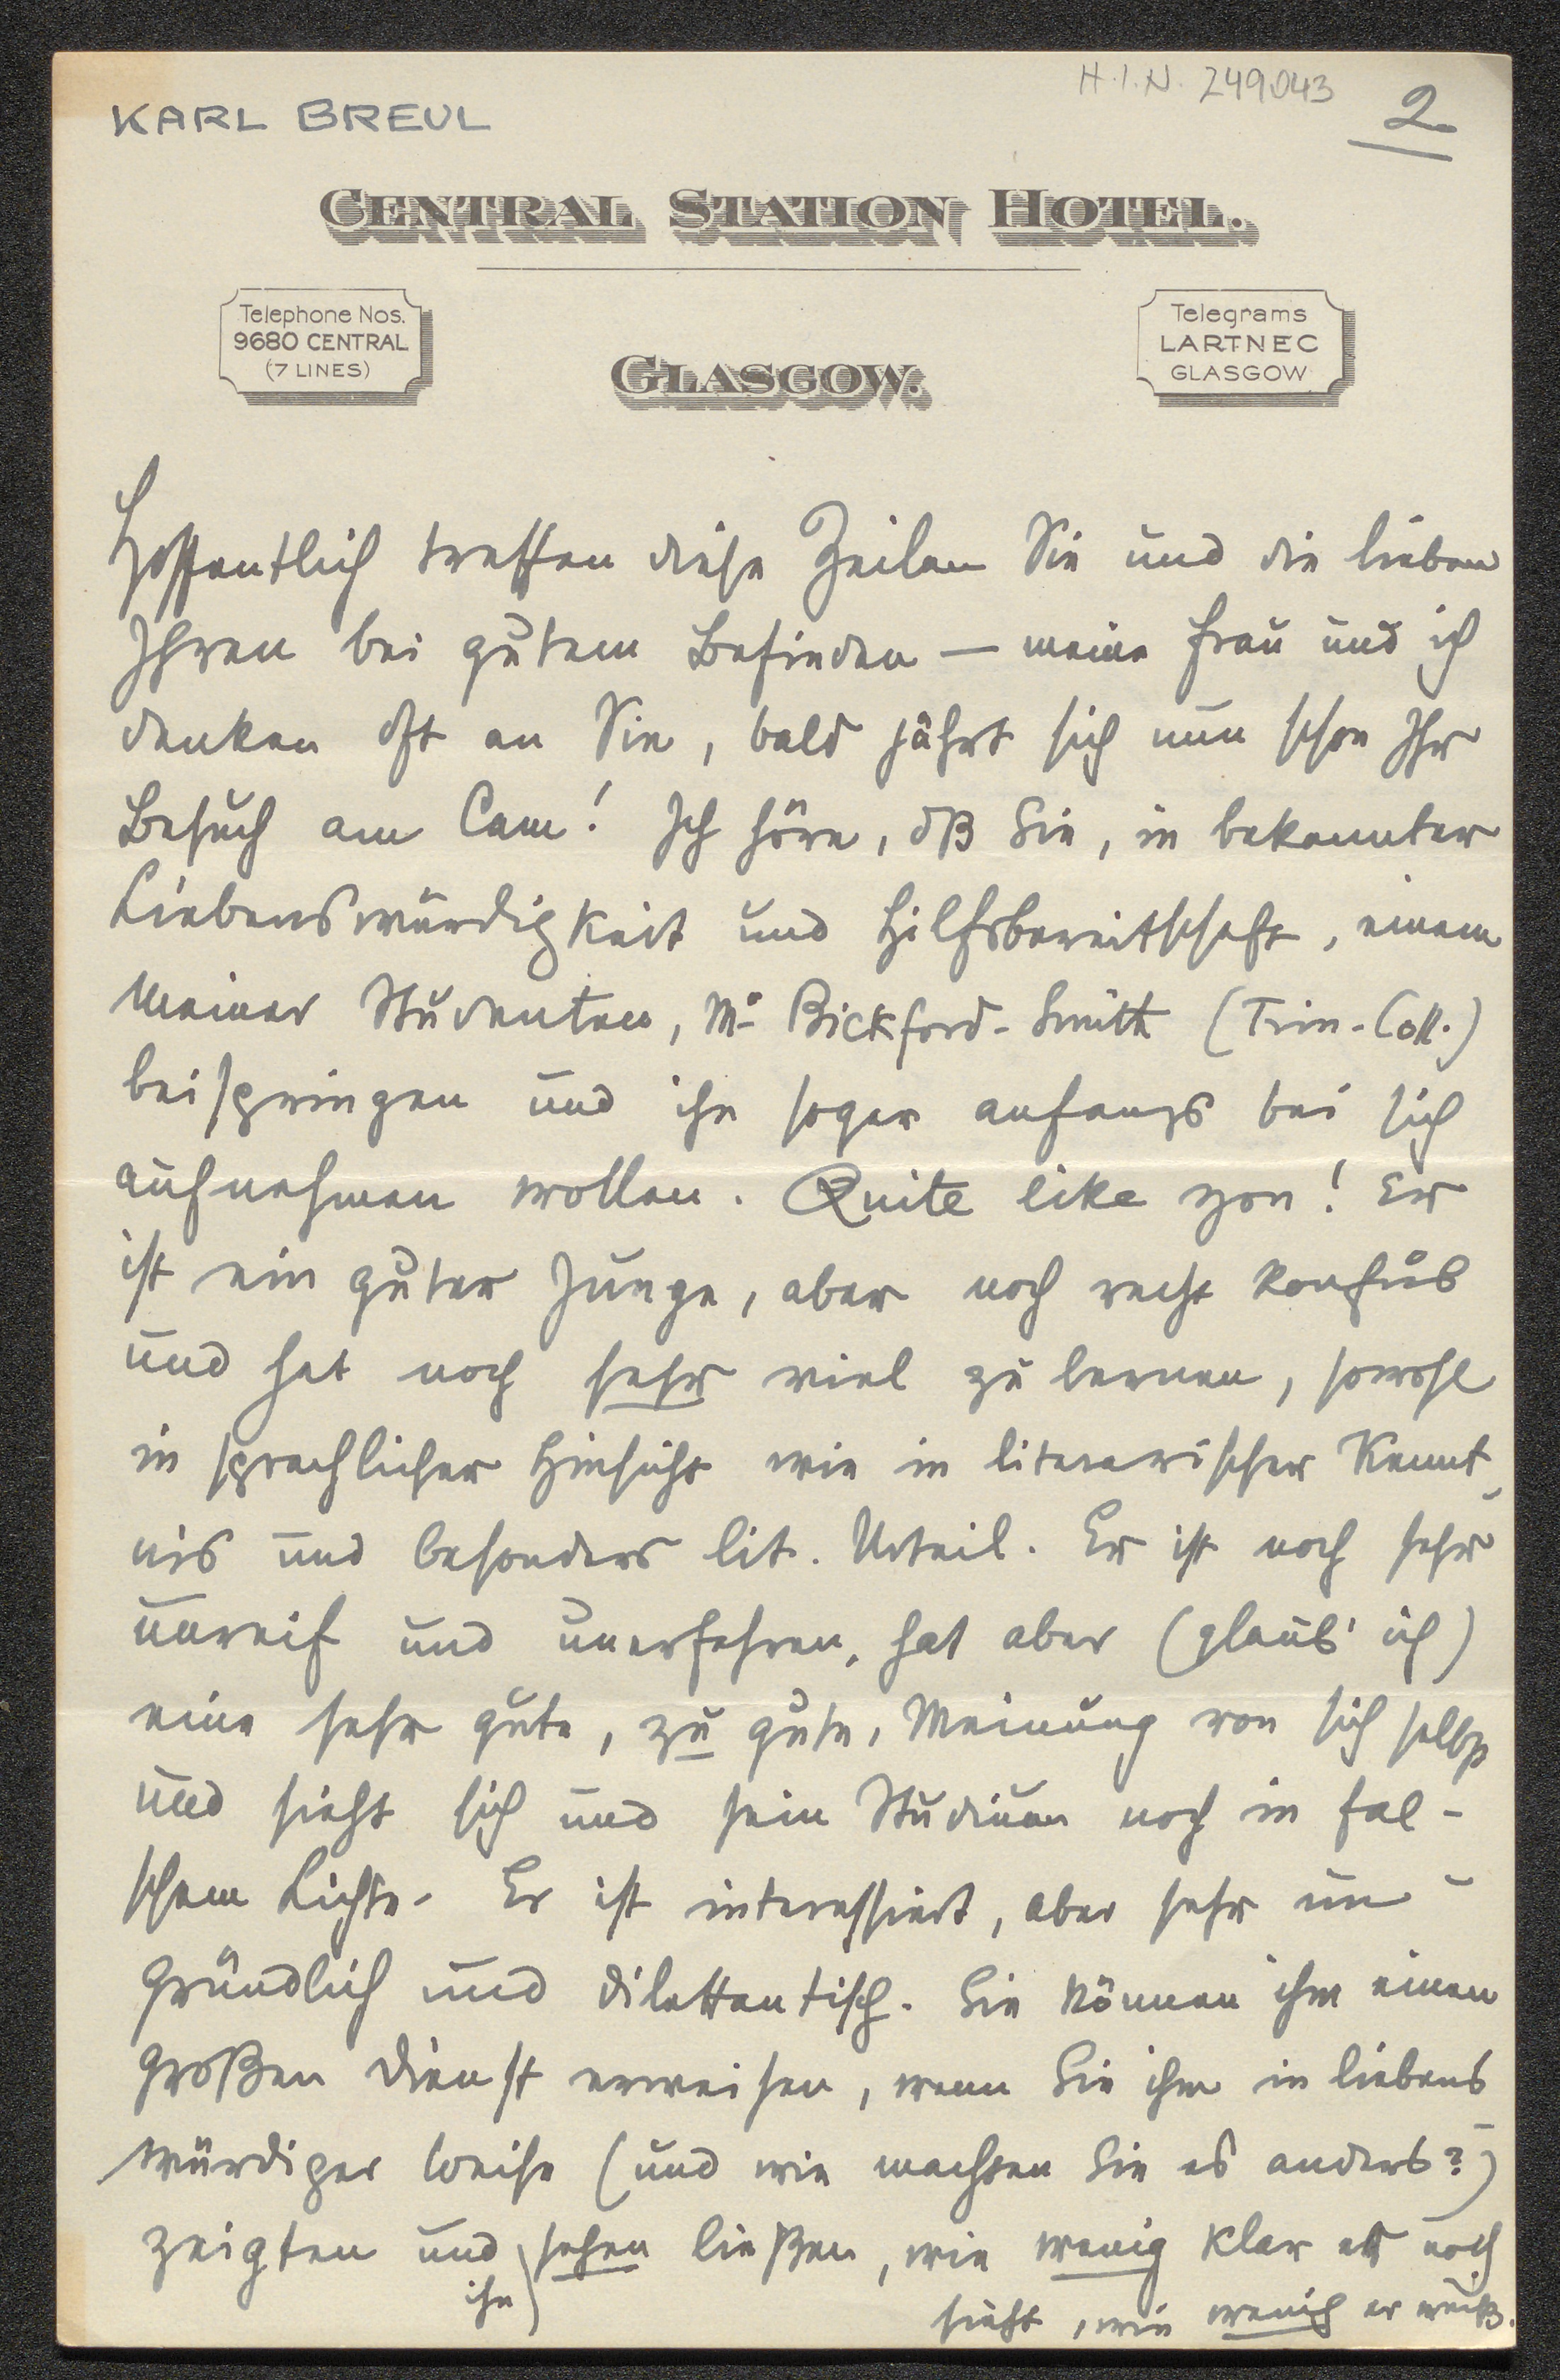 H.I.N. 249043
KARL BREUL
2
CENTRAL STATION HOTEL.
Telephone Nos.
9680 CENTRAL
(7 LINES)
Telegrams
LARTNEC
GLASGOW
GLASGOW.
Hoffentlich treffen diese Zeilen Sie und die lieben
Ihren bei gutem Befinden — meine Frau und ich
denken oft an Sie, bald jährt sich nun schon Ihr
Besuch am Cam! Ich höre, dß Sie, in bekannter
Liebenswürdigkeit und Hilfsbereitschaft, einem
meiner Studenten, Mr Bickford-Smith (Trin. Coll.)
beispringen und ihn sogar anfangs bei sich
aufnehmen wollen. Quite like you! Er
ist ein guter Junge, aber noch recht konfus
und hat noch sehr viel zu lernen, sowohl
in sprachlicher Hinsicht wie in literarischer Kennt-
nis und besonders lit. Urteil. Er ist noch sehr
unreif und unerfahren, hat aber (glaub' ich)
eine sehr gute, zu gute, Meinung von sich selbst
und sieht sich und sein Studium noch in fal-
schem Lichte. Er ist interessiert, aber sehr un-
gründlich und dilettantisch. Sie können ihm einen
großen Dienst erweisen, wenn Sie ihm in liebens-
würdiger Weise (und wie machten Sie es anders?)
zeigten und ihn sehen ließen, wie wenig klar er noch
sieht, wie wenig er weiß.